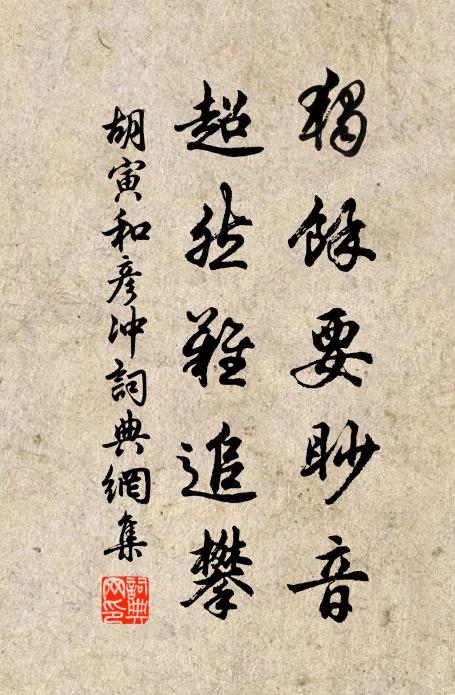 獨餘要眇音
超然難追攀
胡寅和彥沖詞典網集
詞典